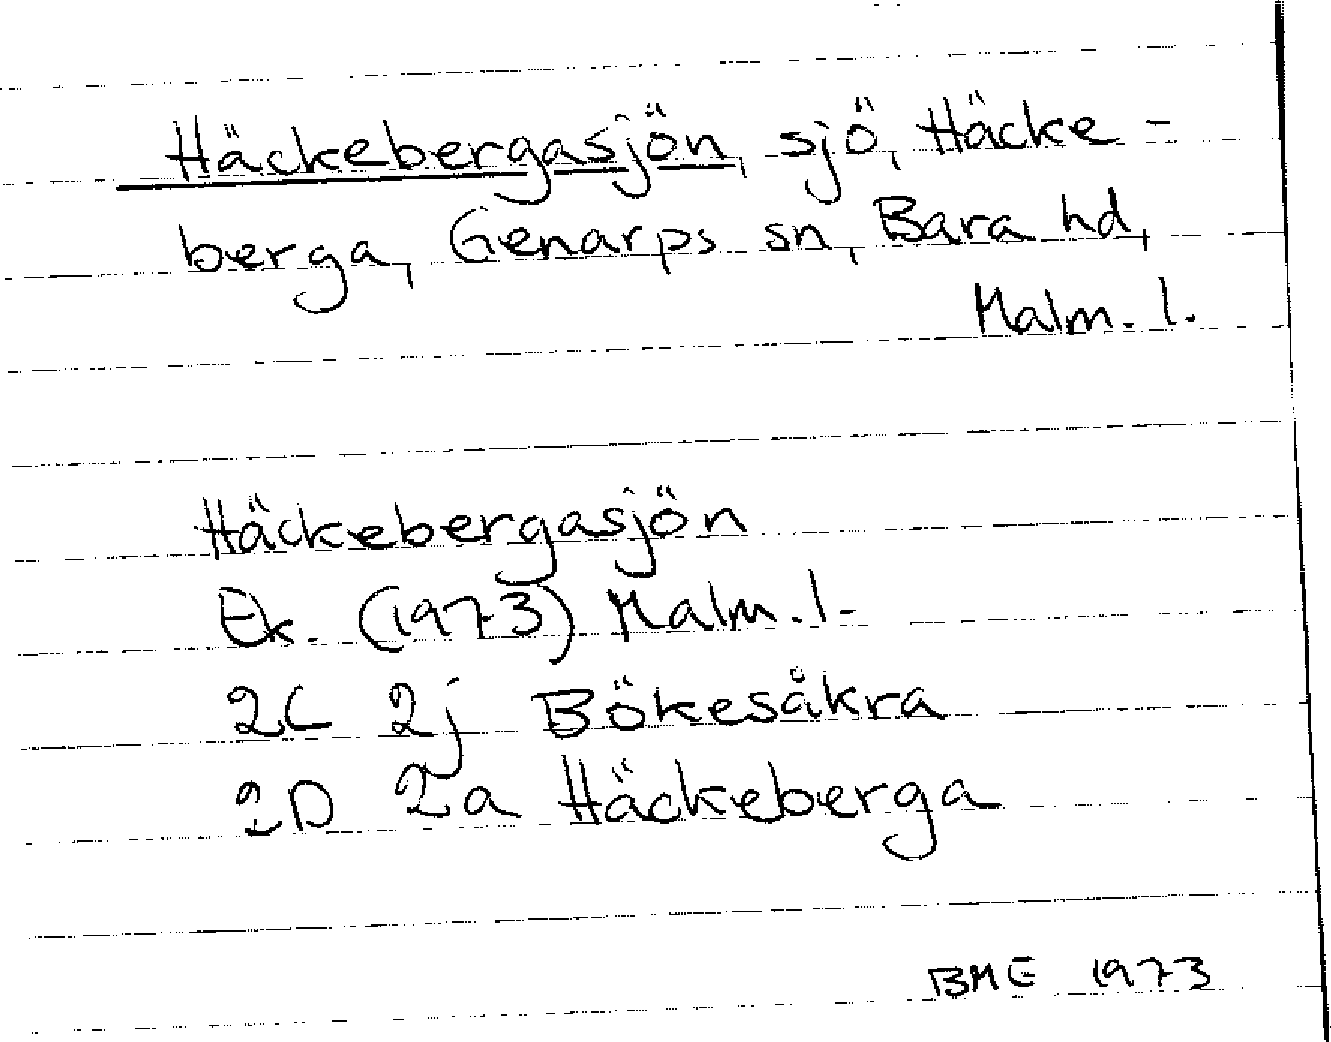 Häckebergasjön, sjö, Häcke-
berga, Genarps sn, Bara hd,
Malm. l.
Häckebergasjön
Ek. (1973) Malm. l.
2C 2j Bökesåkra
2D 2a Häckeberga
BME 1973